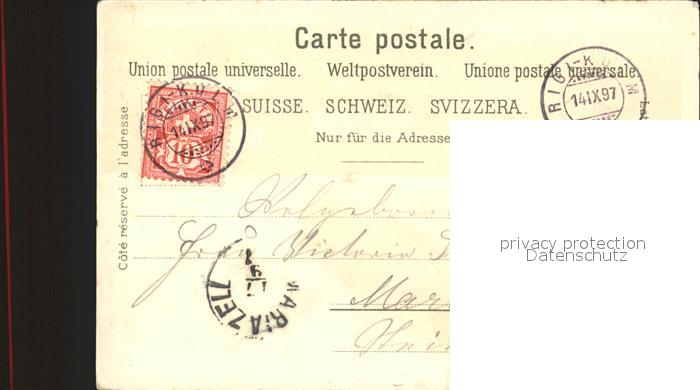 Carte postale.
Union postale universelle. Weltpostverein. Unione postale universale.
SUISSE. SCHWEIZ. SVIZZERA.
Nur für die Adresse
Côté réservé à l'adresse
RIGI-KULM
14 IX 97
10
RIGI-KULM
14 IX 97
Frau Victoria
Mar
MARIAZELL
privacy protection
Datenschutz